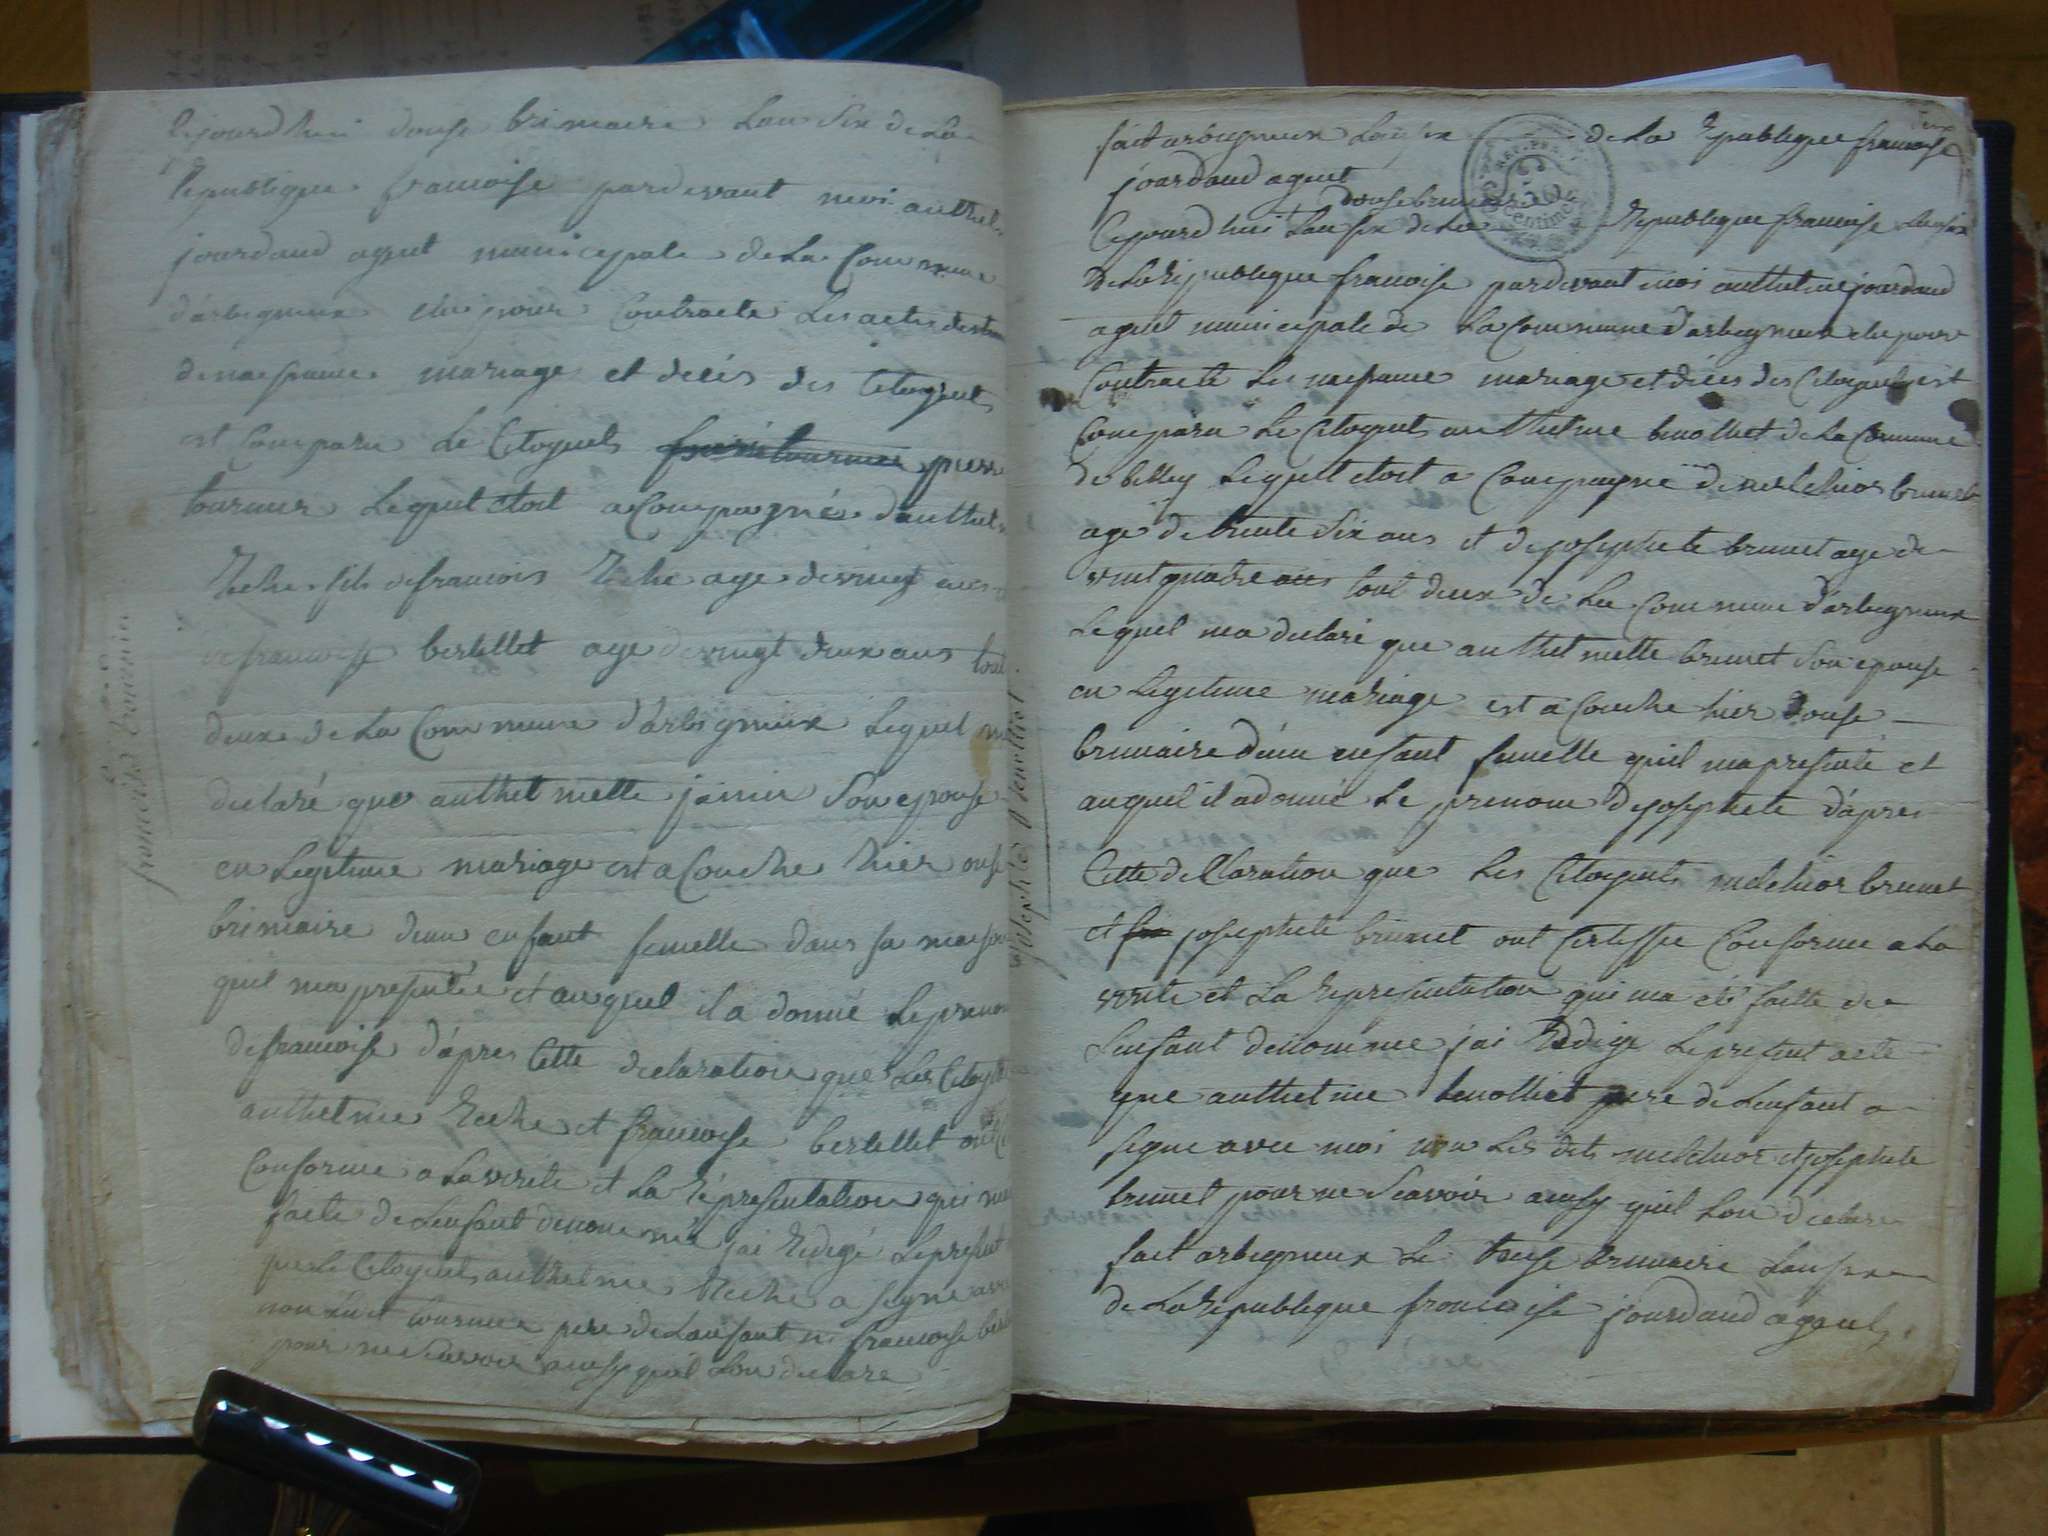 Cejourdhui douse brimaire Lan Six de La
Republique francoise pardevant moi anthel
jourdand agent municipale de La Commune
d'arbigneux elu pour Contracte Les actes
de naissance mariage et decés des Citoyents
est Comparu Le Citoyents pierre
tournier Lequel etoit acompagné d'anthel
Reche fils de francois Reche age de vingt ans
de francoise bertellet age de vingt deux ans tout
deux de La Commune d'arbigneux Lequel ma
declaré que anthelmette janin Son epouse
en Legitime mariage est a Couche hier onse
brimaire dunn enfant femelle dans sa maison
quil ma presentée et auquel il a donné Le prenom
de francoise d'apres Cette declaration que Les Citoyts
anthelme Reche et francoise bertellet ont
Conforme a La verite et La répresentation qui ma
faite de Lenfant denommé jai Redigé Le present
que Le Citoyents anthelme Reche a signe avec
non Ledit tournier pere de Lenfant ni francoise
pour ne Scavoir ausy quil Lon declare
francoise tournier
deux
fait arbigneux Lan six de La Republique francoise
jourdand agent
douse brumaire
Cejourdhui Lan six de La Republique francoise
de La Republique francoise pardevant moi anthelme jourdand
agent municipale de La Commune d'arbigneux elu pour
Contracte Les naissance mariage et décés des Citoyents est
Comparu Le Citoyents anthelme benolliet de La Commune
de belley Lequel etoit a Compagné de melchior brunet
age de trente Six ans et de josephete brunet age de
vint quatre ans tout deux de La Commune d'arbigneux
Lequel ma declaré que anthelmette brunet Son epouse
en Legitime mariage est a Couche hier douse
brumaire dunn enfant femelle quil ma presenté et
auquel il a donné Le prenom de josephete d'apres
Cette declaration que Les Citoyents melchior brunet
et josephete brunet ont Certiffie Conforme a La
verite et La representation qui ma eté faitte de
Lenfant denommee jai Redige Le present acte
que anthelme benolliet pere de Lenfant a
signe avec moi non Les dits melchior et josephete
brunet pour ne Scavoir ausy quil Lon declare
fait arbigneux Le trese brumaire Lan six
de La Republique francoise jourdand agent
josephte benolliet